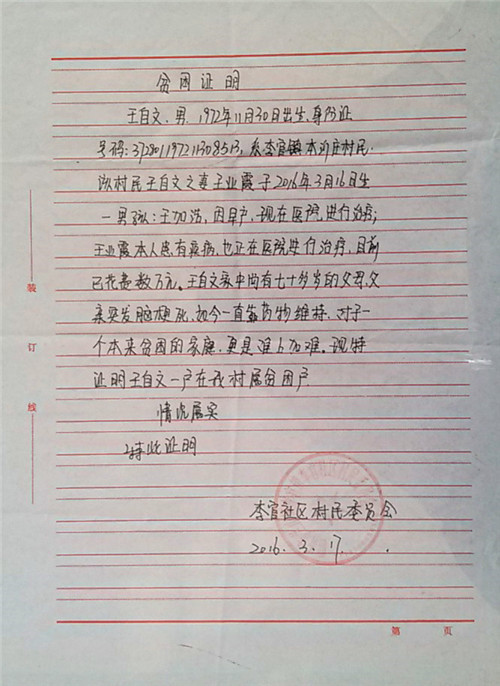 贫困证明
王自文、男、1972年11月30日出生、身份证
号码：372801197211308513，系李官镇本沂庄村民.
该村民王自文之妻王业霞于2016年3月16日生
一男孩：王加浩，因早产、现在医院进行治疗；
王业霞本人患有疾病，也正在医院进行治疗，目前
已花费数万元。王自文家中尚有七十多岁的父母，父
亲突发脑梗死，如今一直靠药物维持，对于一
个本来贫困的家庭，更是难上加难。现特
证明王自文一户在我村属贫困户
情况属实
特此证明
李官社区村民委员会
2016.3.17
装
订
线
第 页